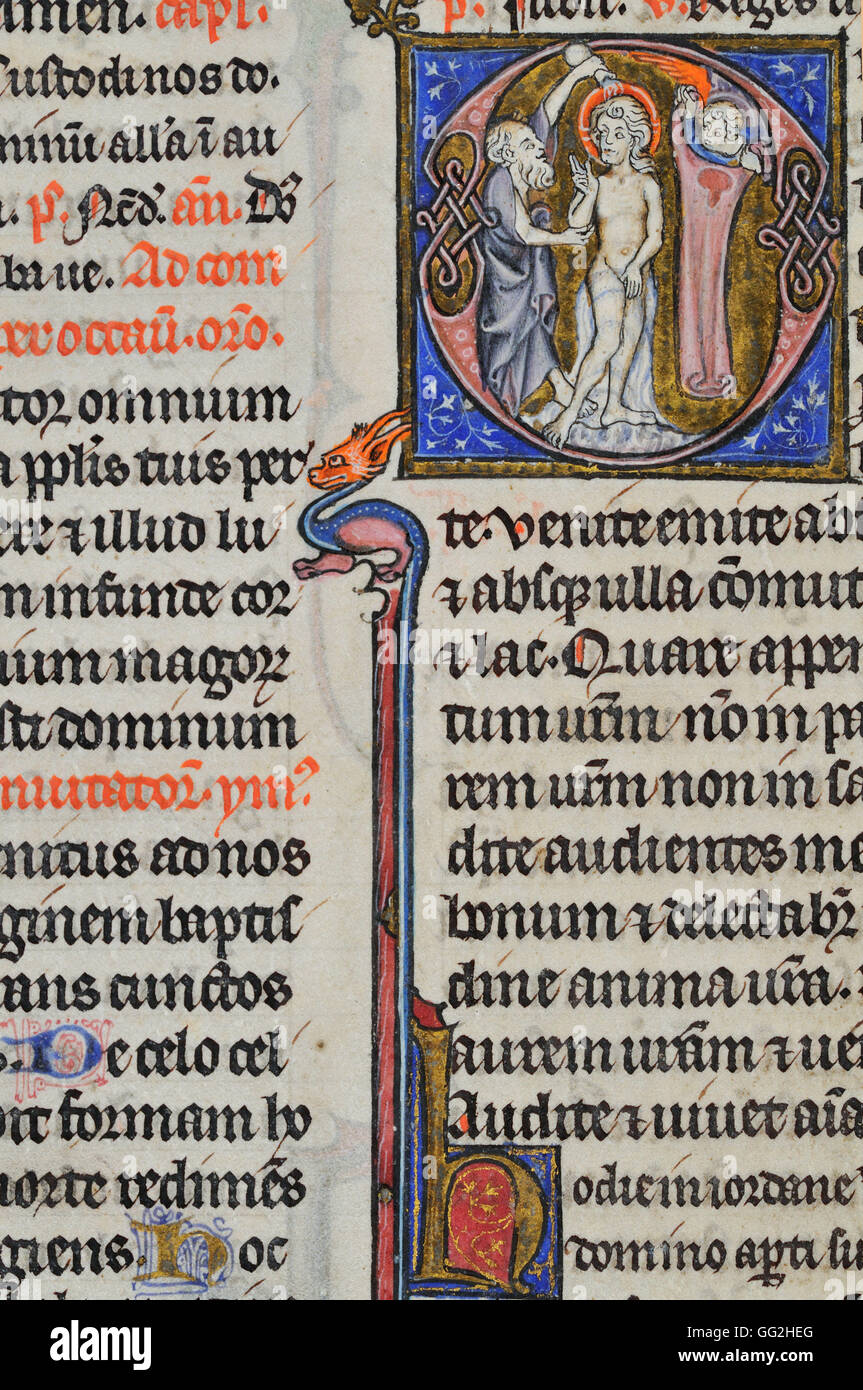 men. capl.
Custodi nos do.
minū all'a ī au
ba ue. Ad com
tor omnium
a pplis tuis per
ere ⁊ illud lu
n infunde cor
ium magoꝝ
sti dominum
mutator̄. ymꝰ
nitus ad nos
ginem baptis
ans cunctos
s. De celo cel
formam ho
orte redimēs
giens. hoc
v̄. Reges
te. Venite emite ab
⁊ absq̄ ulla cōmut
⁊ lac. Quare appen
tum ur̄m nō in pa
rem ur̄m non in sa
dite audientes me
bonum ⁊ delectabr̄
dine anima ur̄a.
aurem ur̄am ⁊ ue
Audite ⁊ uiuet aīa
hodie in iordane
domino apti su
alamy stock photo
GG2HEG
www.alamy.com